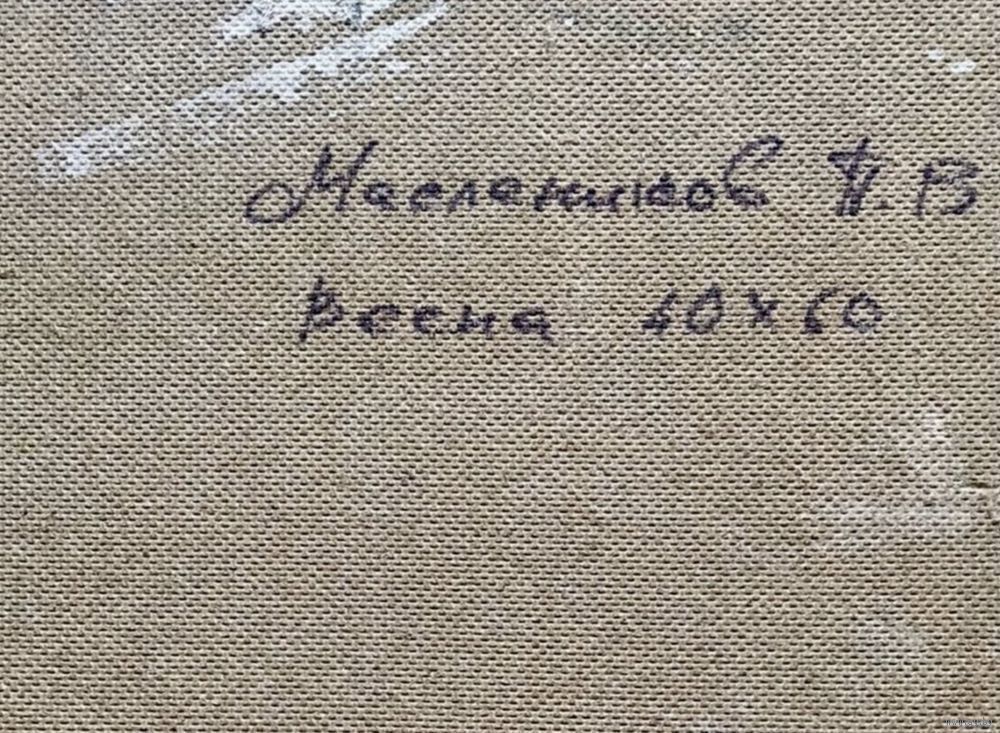 Масленников П. В
весна 40х60